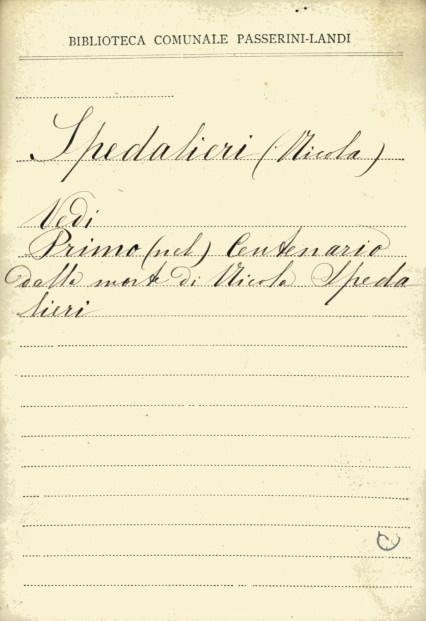 BIBLIOTECA COMUNALE PASSERINI-LANDI
Spedalieri (Nicola)
Vedi
Primo (nel) Centenario
dalla morte di Nicola Speda
lieri
C